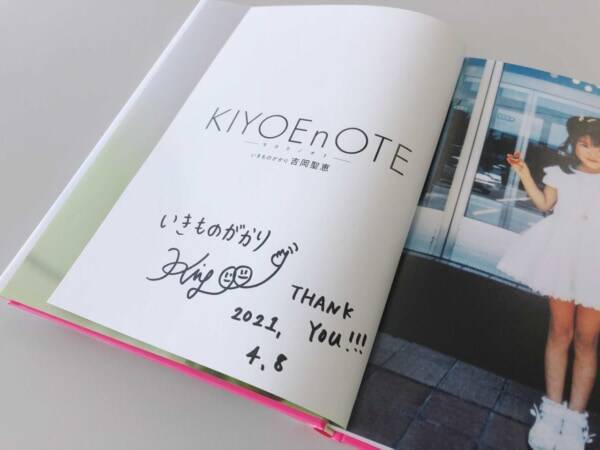 KIYOEnOTE
キヨエノオト
いきものがかり 吉岡聖恵
いきものがかり
THANK
YOU!!!
2021,
4.8